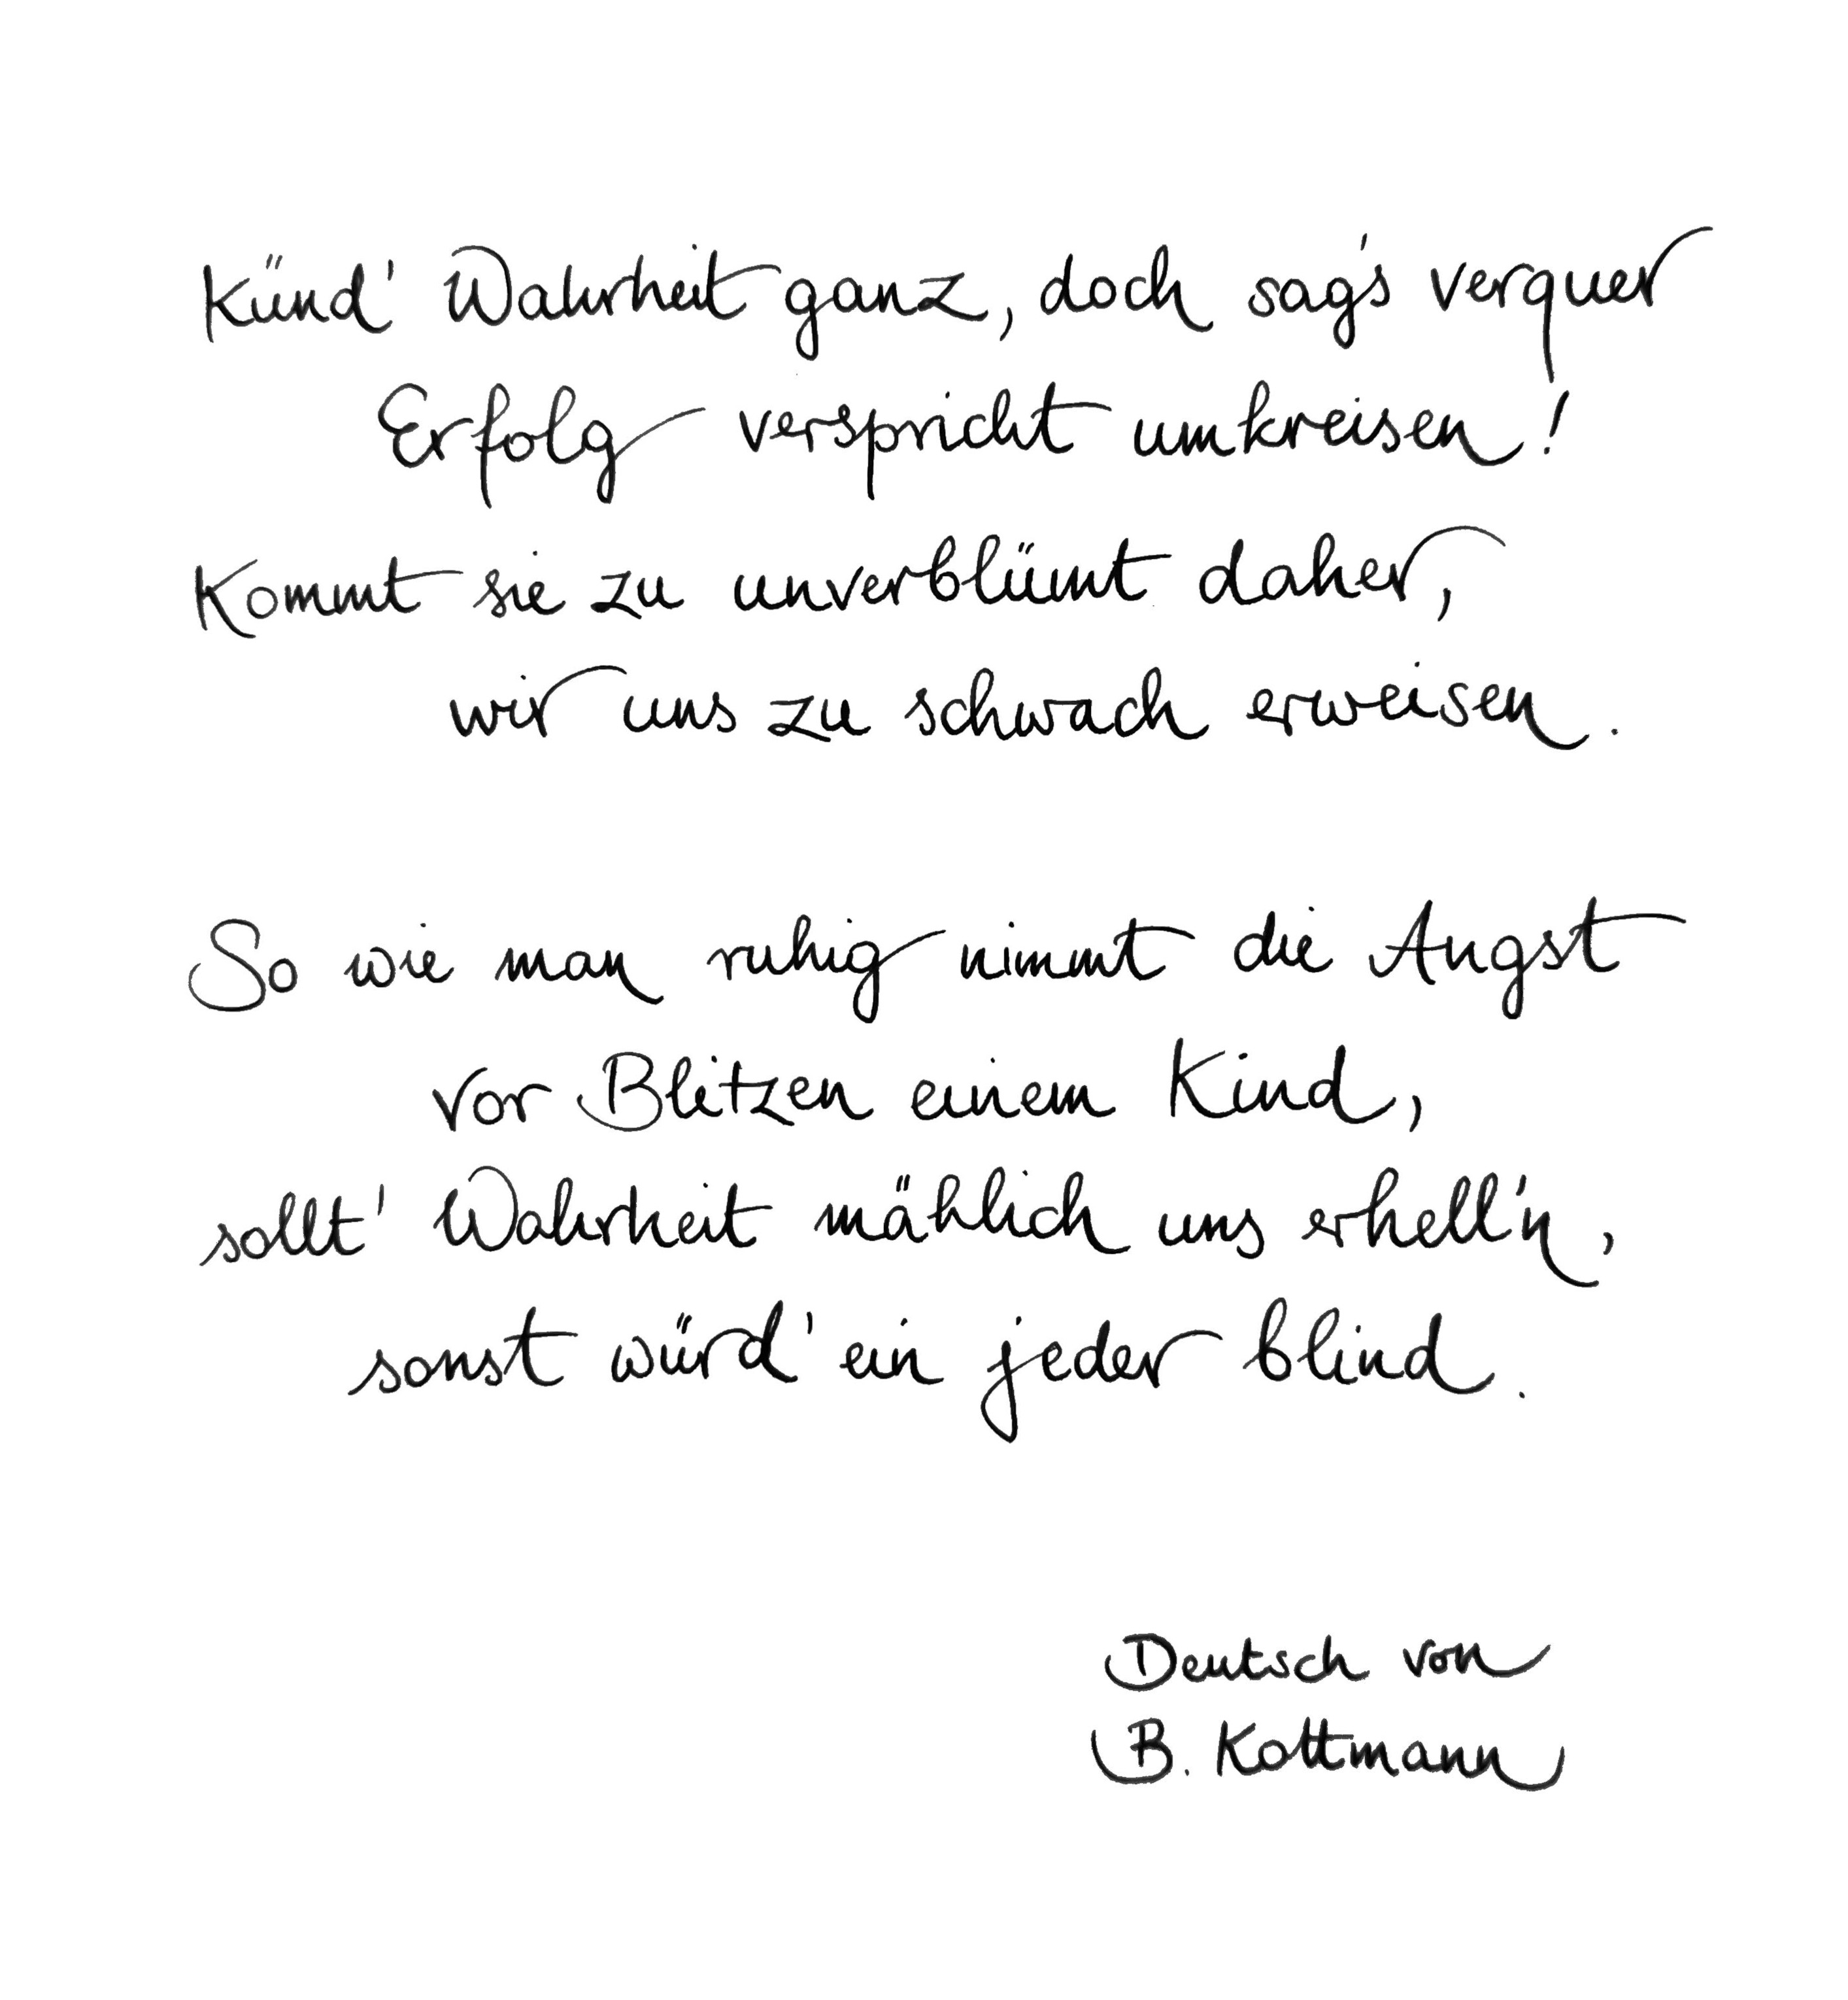 Künd' Wahrheit ganz, doch sag's verquer
Erfolg verspricht umkreisen!
Kommt sie zu unverblümt daher,
wir uns zu schwach erweisen.
So wie man ruhig nimmt die Angst
vor Blitzen einem Kind,
sollt' Wahrheit mählich uns erhell'n,
sonst würd' ein jeder blind.
Deutsch von
B. Kottmann